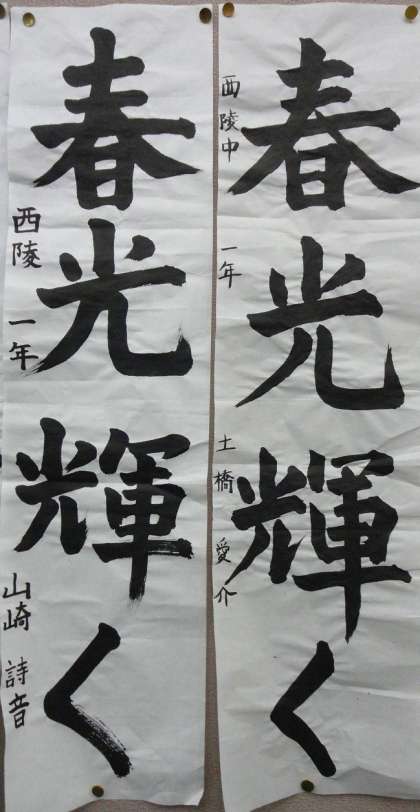 春光輝く
西陵中 一年 土橋愛介
春光輝く
西陵 一年 山崎詩音